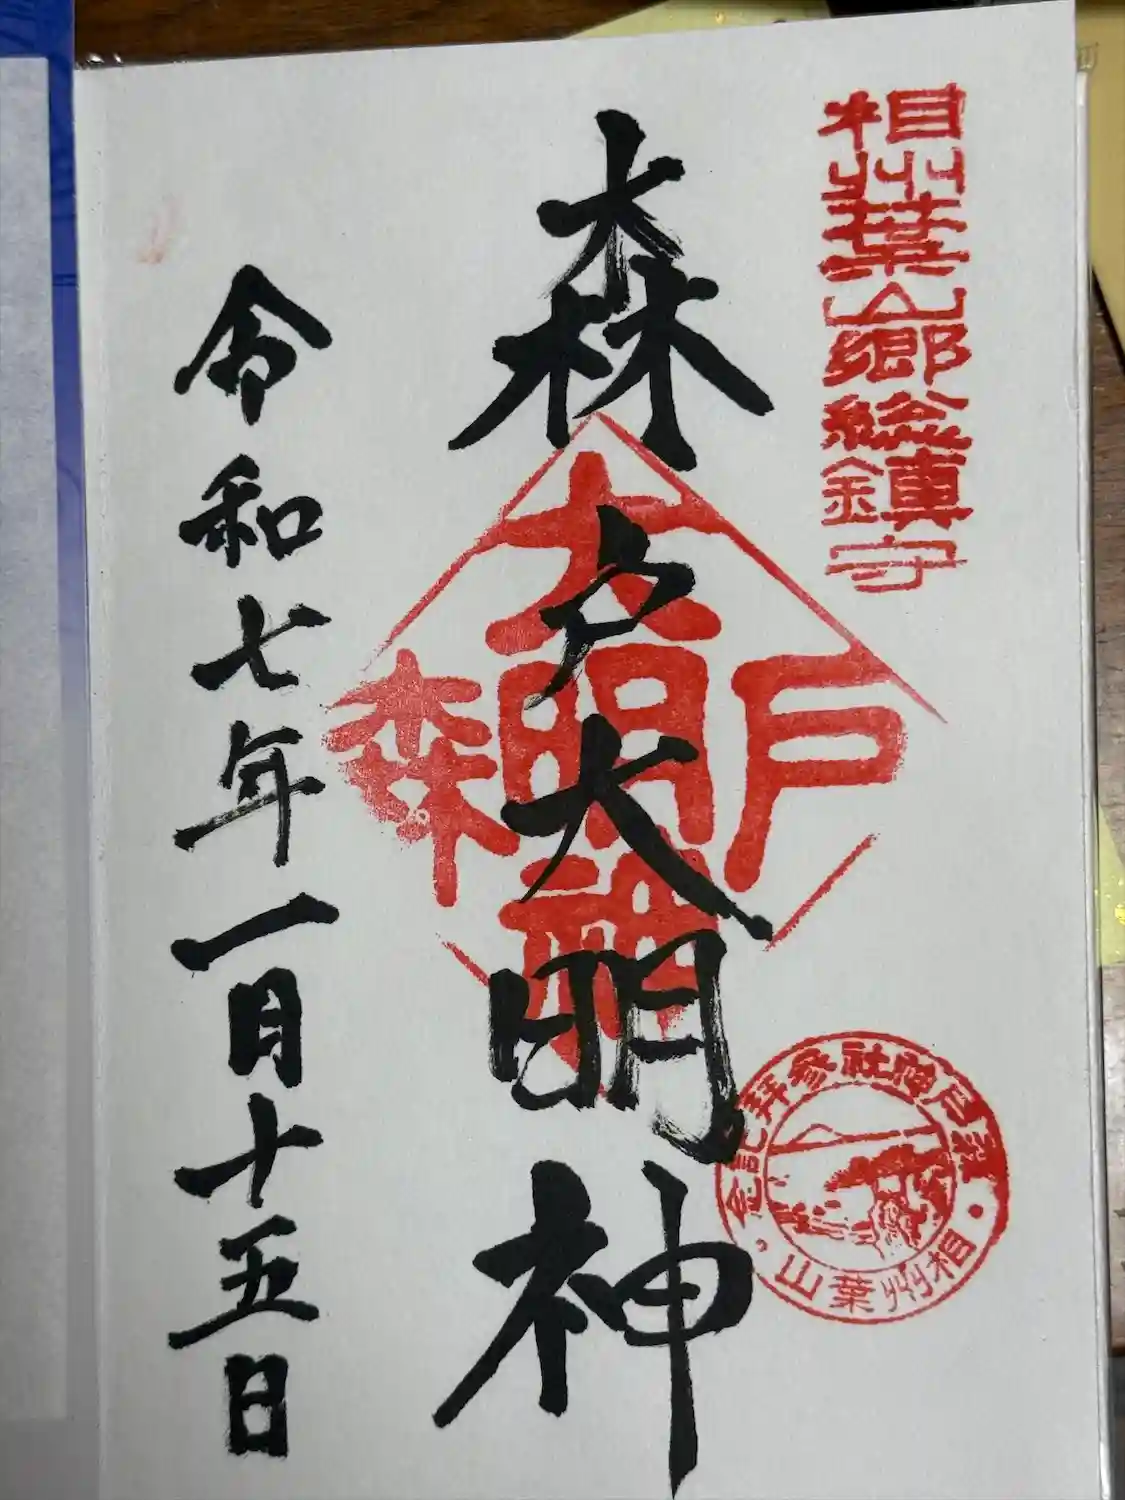 相州葉山郷総鎮守
森戸大明神
森戸大明神
森戸神社参拝記念
相州葉山
令和七年一月十五日